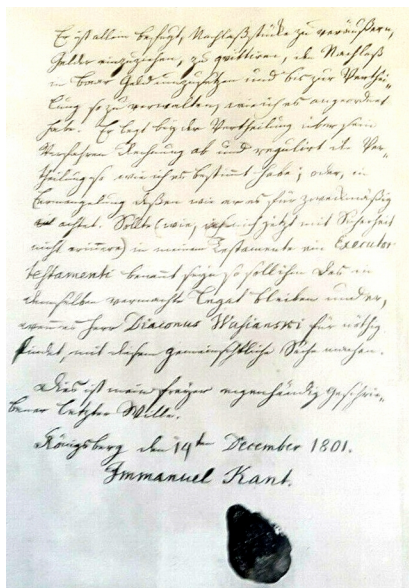 Er ist allein befugt, Nachlaßstücke zu veräußern,
Gelder einzuziehen, zu quittiren, den Nachlaß
in baar Geld umzusetzen und bis zur Verthei-
lung so zu verwalten, wie ich es angeordnet
habe. Er legt bey der Vertheilung über sein
Verfahren Rechnung ab und regulirt die Ver-
theilung so wie ich es bestimmt habe; oder, in
Ermangelung deßen wie er es für zweckmäßig
achtet. Sollte (wie, ich mich jetzt mit Sicherheit
nicht erinnere) in meinem Testamente ein Executor
testamenti benannt seyn so soll ihm das in
demselben vermachte Legat bleiben und er,
wenn es Herr Diaconus Wasianski für nöthig
findet, mit diesem gemeinschaftliche Sache machen.
Dies ist mein freyer eigenhändig geschrie-
bener letzter Wille.
Königsberg den 14ten December 1801.
Immanuel Kant.